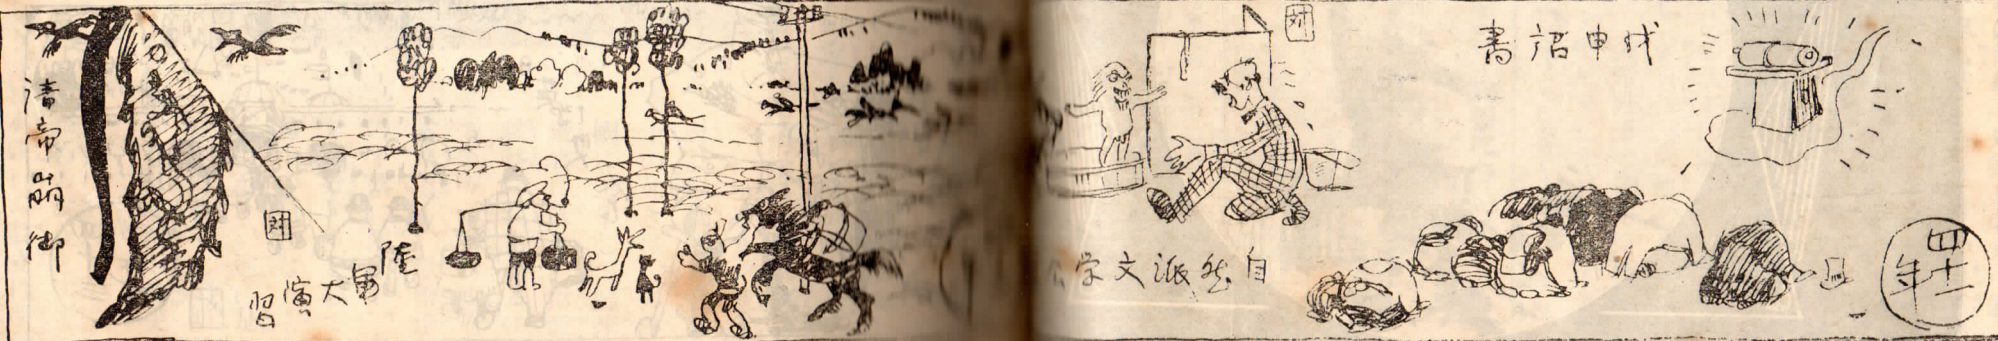 四十一年
戊申詔書
自然派文学
陸軍大演習
清帝崩御